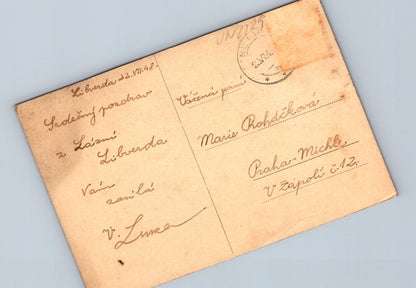 Libverda 23.VII.48-
Srdečný pozdrav
z Lázní
Libverda
Vám
zasílá
V.
Vážená paní
Marie Roháčková
Praha-Michle
V Zápolí č 12.